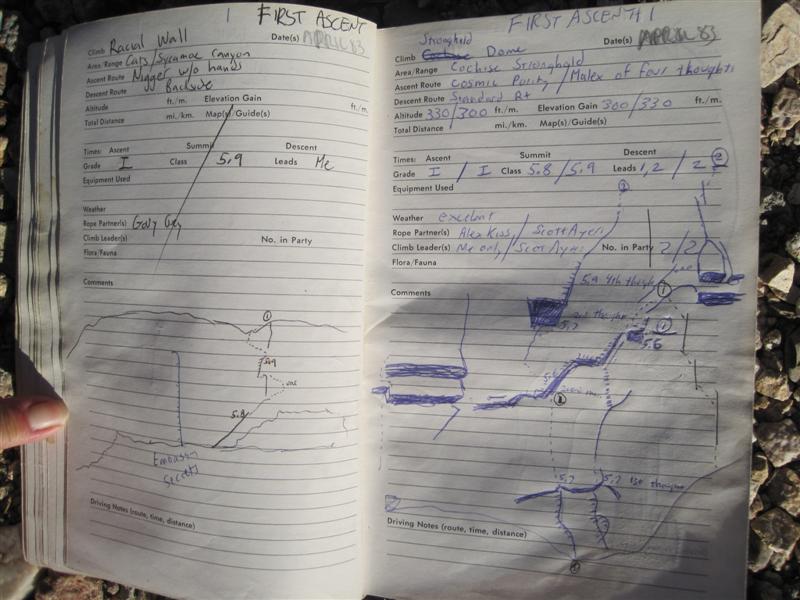 1 FIRST ASCENT
Climb Racial Wall Date(s) APRIL 83
Area/Range Cats/Sycamoe Canyon
Ascent Route Nigger w/o hands
Descent Route Backside
Altitude ft./m. Elevation Gain ft./m.
Total Distance mi./km. Map(s)/Guide(s)
Times: Ascent Summit Descent
Grade I Class 5.9 Leads Me
Equipment Used
Weather
Rope Partner(s)
Climb Leader(s) No. in Party
Flora/Fauna
Comments
1
5.9
5.8
Embassy
Secrets
Driving Notes (route, time, distance)
FIRST ASCENT 1
Stronghold
Climb Cochise Dome Date(s) APRIL 83
Area/Range Cochise Stronghold
Ascent Route Cosmic Purity / Malex of four thoughts
Descent Route Standard Rt
Altitude 330/300 ft./m. Elevation Gain 300/330 ft./m.
Total Distance mi./km. Map(s)/Guide(s)
Times: Ascent Summit Descent
Grade I / I Class 5.8/5.9 Leads 1,2 / 2
Equipment Used
Weather excelent
Rope Partner(s) Alex Kiss / Scott Ayers
Climb Leader(s) Me only / Scott Ayers No. in Party 2/2
Flora/Fauna
5.9 4th thought
Comments
5.7
5.6
5.7 5.7 1st thought
Driving Notes (route, time, distance)